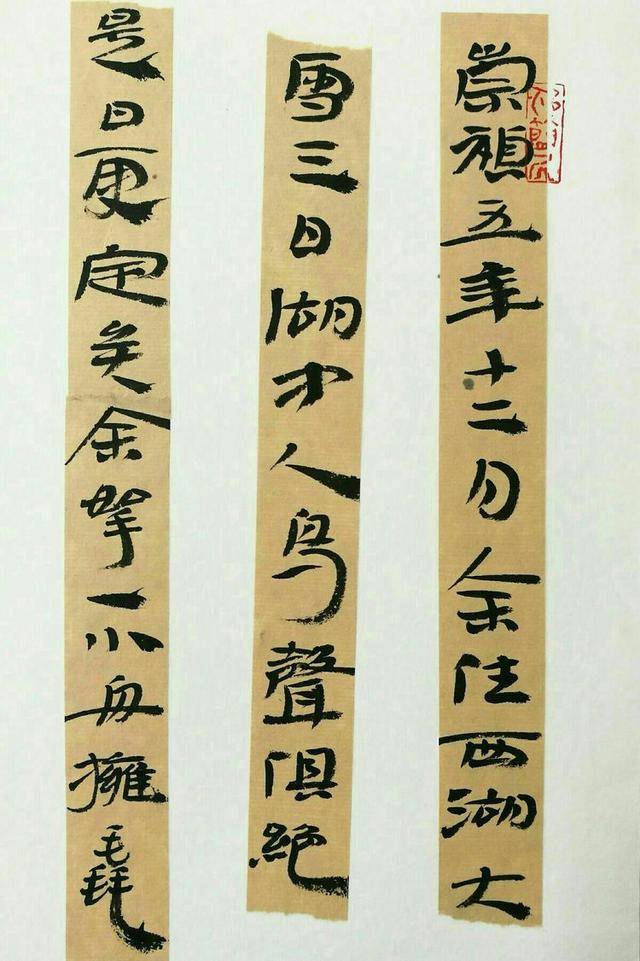 崇禎五年十二月余住西湖大
雪三日湖中人鸟聲俱絕
是日更定矣余拏一小舟擁毳